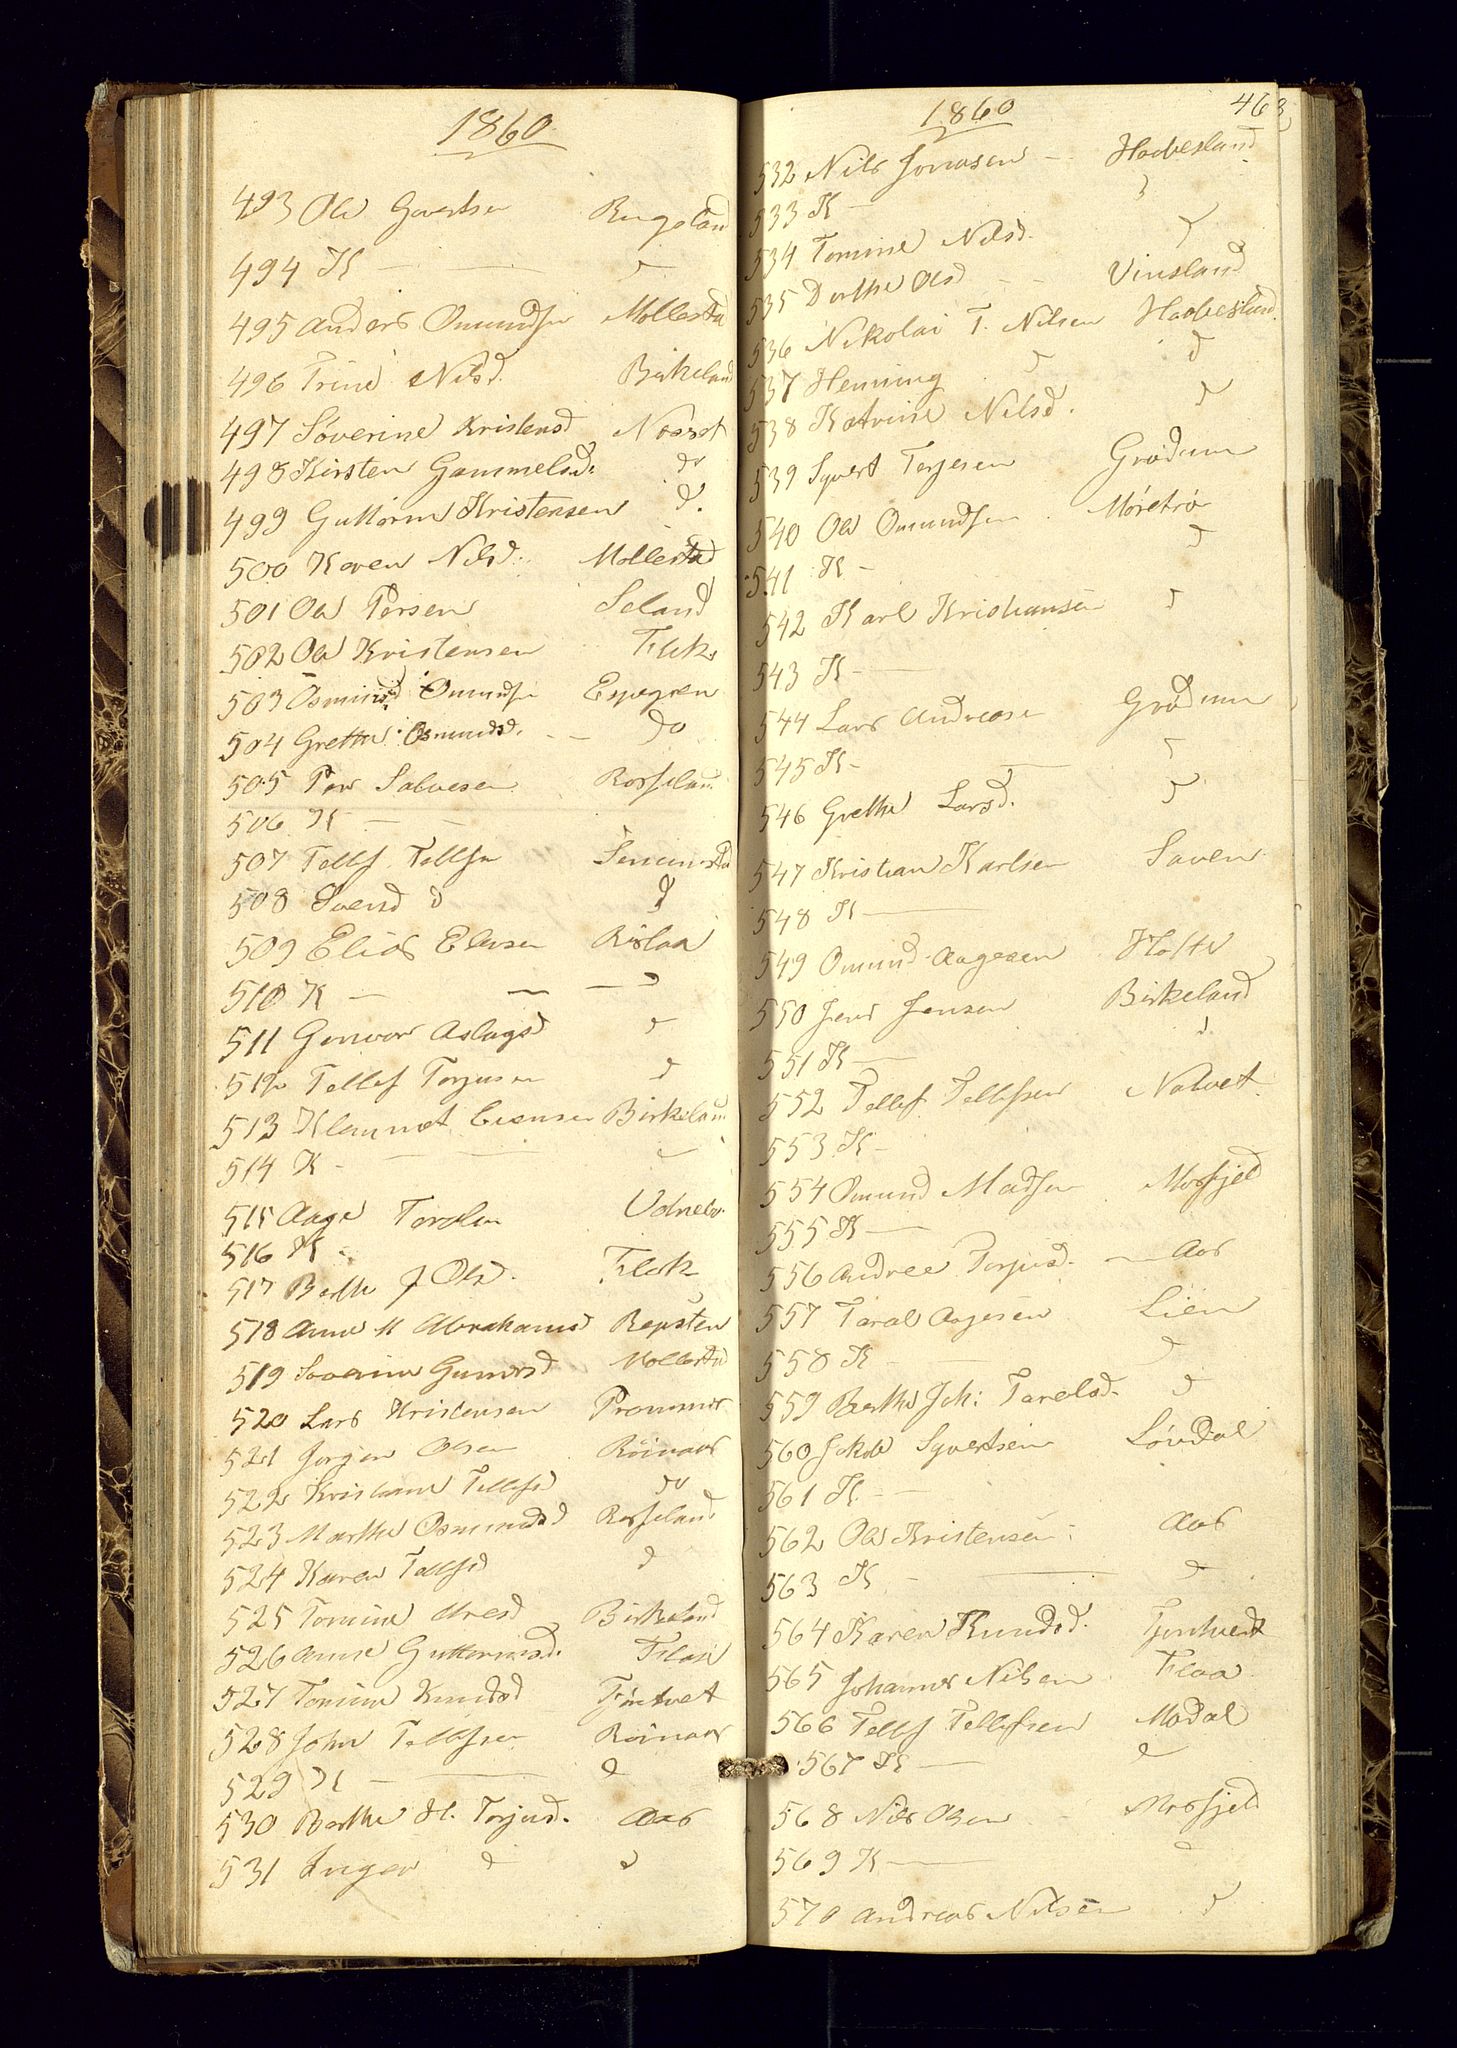 1860
493 Ole Govertsen Ringeland
494 K — — d
495 Anders Omundsen Mollestad
496 Trine Nilsd. Birkeland
497 Søverine Kristensd
498 Kirsten Gammelsd. do
499 Guttorm Kristensen d.
500 Karen Nilsd. Mollestad
501 Ole Persen Seland
502 Ole Kristensen Flek
503 Osmund Omundsn Espegren
504 Grethe Osmundsd. — do
505 Per Salvesen Rosseland
506 K — —
507 Tellef Tellfsn
508 Svend d d
509 Elias Elersen Rislaa
510 K — — — d
511 Gunvor Aslagsd d
512 Tellef Torjusen d
513 Birkeland
514 K — — —
515 Aage Torolsen
516 K -
517 Berthe J Olsd. Flek
518 Anne M Abrahamsd Repsten
519 Søverine Gunersd Mollestad
520 Lars Kristensen
521 Jørgen Olsen Röinaas
522 Kristiane Tellefsd do
523 Marthe Osmundsd Rosseland
524 Karen Tellefsd d
525 Tomine Aresd Birkeland
526 Anne Guttormsd. Flaa
527 Tomine Knudsd
528 John Tellefsen Röinaas
529 K — — d
530 Berthe H. Torjusd. Aas
531 Inger d d
1860 463
532 Nils Jonassen — Haabesland
533 K — d
534 Tomine Nilsd. d
535 Dorthe Olsd — Vinsland
536 Nikolai T. Nilsen Haabesland.
537 Henning d d
538 Katrine Nilsd. d
539 Syvert Terjesen Grødum
540 Ole Omundsen Møretrø
541 K — d
542 Karl Kristiansen d
543 K —
544 Lars Andreasen Grødum
545 K — — d
546 Grethe Larsd. d
547 Kristian Karlsen Saven
548 K —
549 Omund Aagesen Holte
550 Jens Jensen Birkeland
551 K — d.
552 Tellef Tellefsen
553 K —
554 Omund Madsen Mosfjeld
555 K —
556 Andrea Torjusd. — Aas
557 Tarol Aagesen Lien
558 K d
559 Berthe Joh: Tarolsd. d
560 Jakob Syvertsen Løvdal
561 K —
562 Ole Kristensen Aas
563 K — — d
564 Karen Knudsd.
565 Johannes Nilsen Flaa
566 Tellef Tellefsen Modal
567 K — d
568 Nils Olsen Mosfjeld
569 K — d
570 Andreas Nilsen d